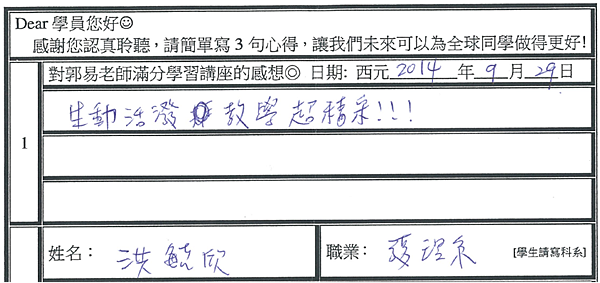 Dear 學員您好☺
感謝您認真聆聽，請簡單寫3句心得，讓我們未來可以為全球同學做得更好!
對郭易老師滿分學習講座的感想◎ 日期: 西元 2014 年 9 月 29 日
1
生動活潑 教學超精采!!!
姓名： 洪毓欣 職業： 護理系 [學生請寫科系]